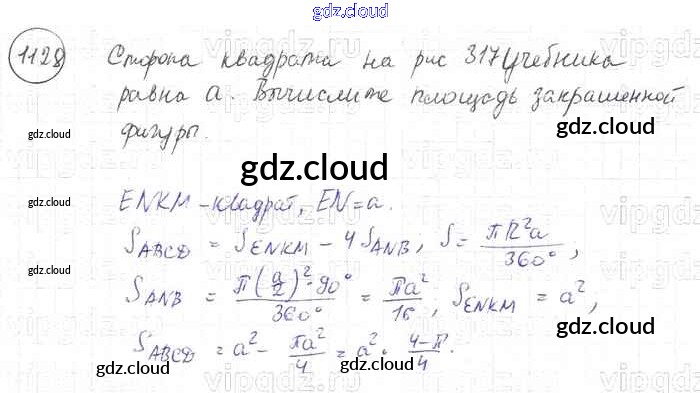 gdz.cloud
1128 Сторона квадрата на рис 317 учебника
равна a. Вычислите площадь закрашенной
фигуры.
gdz.cloud
gdz.cloud
gdz.cloud
gdz.cloud
ENKM - квадрат, EN = a.
S_ABCD = S_ENKM - 4 S_ANB, S = πR²a / 360°,
gdz.cloud
S_ANB = π(a/2)²·90° / 360° = πa² / 16, S_ENKM = a²,
S_ABCD = a² - πa²/4 = a² · (4-π)/4.
gdz.cloud
gdz.cloud
vipgdz.ru